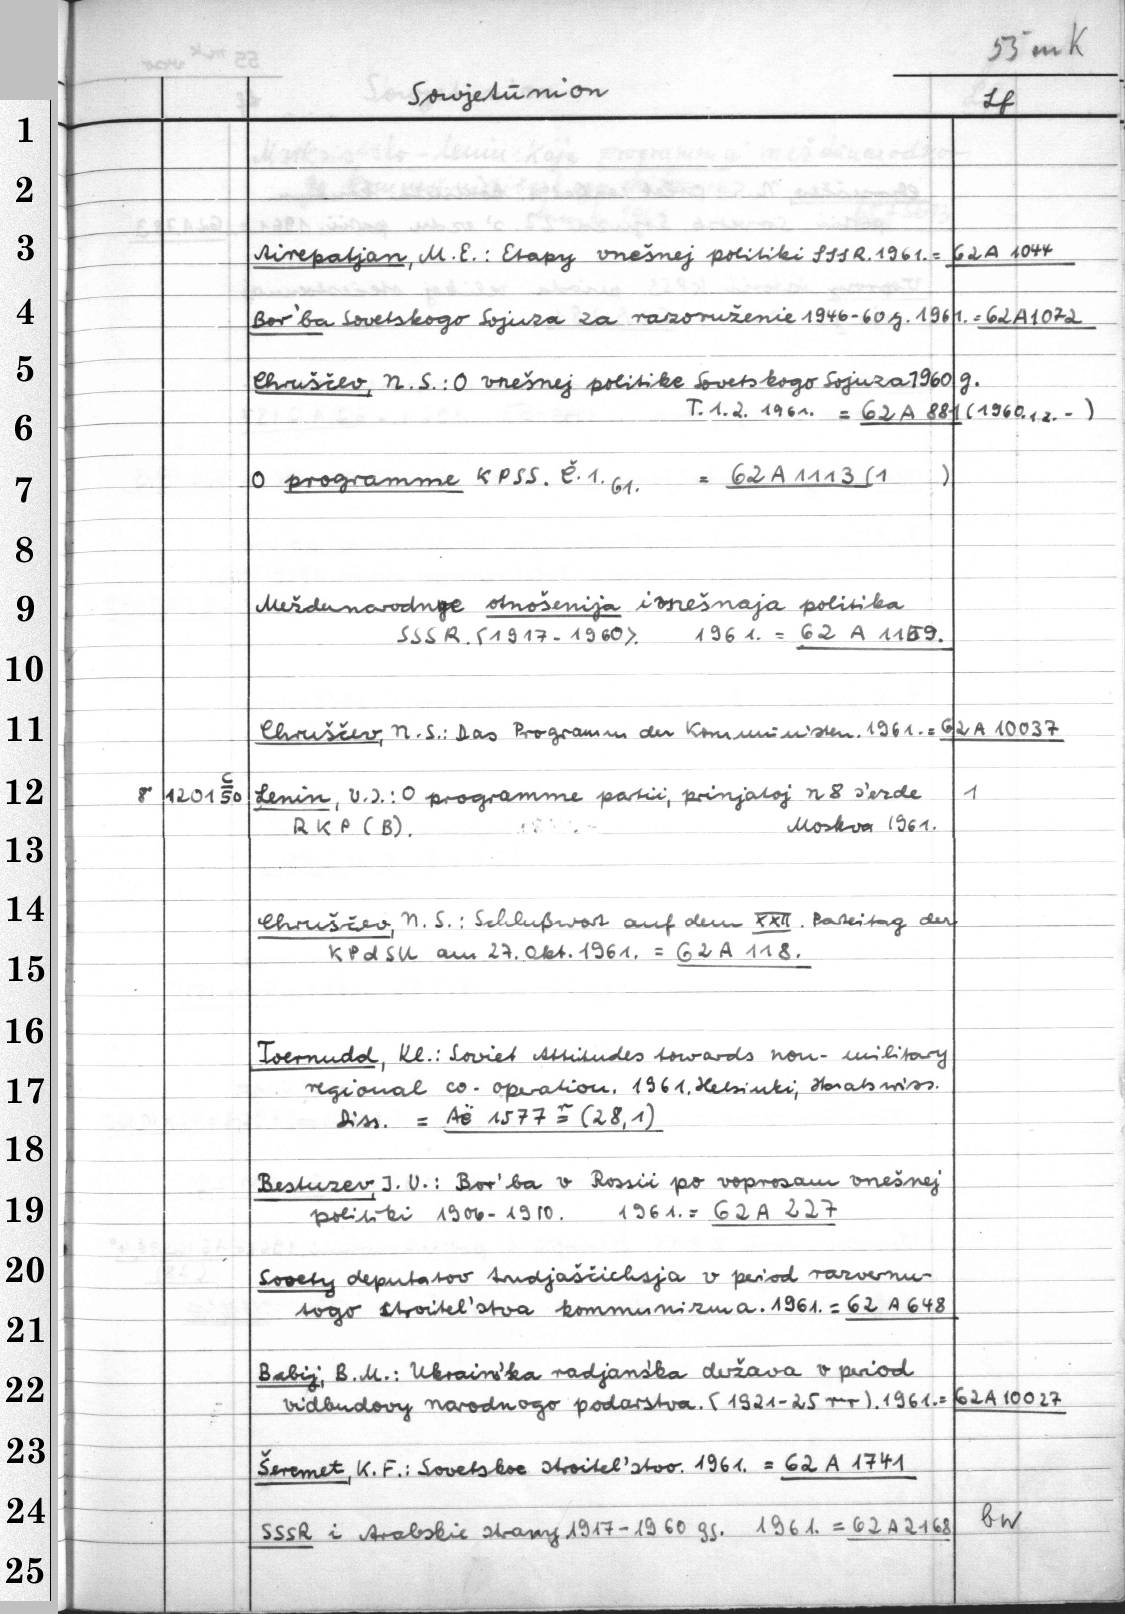 55 m K
Sowjetunion
Lf
1
2
3 Airepatjan, M. E.: Etapy vnešnej politiki SSSR. 1961. = 62 A 1044
4 Bor'ba Sovetskogo Sojuza za razoruženie 1946-60 g. 1961. = 62 A 1072
5 Chruščev, N. S.: O vnešnej politike Sovetskogo Sojuza 1960 g.
6 T. 1. 2. 1961. = 62 A 881 (1960. 1 2. - )
7 O programme KPSS. Č. 1. 61. = 62 A 1113 (1 )
8
9 Meždunarodnye otnošenija i vnešnaja politika
SSSR. (1917-1960). 1961. = 62 A 1159.
10
11 Chruščev, N. S.: Das Programm der Kommunisten. 1961. = 62 A 10037
12 8° 1201 50 Lenin, V. J.: O programme partii, prinjatoj n 8 s'ezde 1
RKP (B). Moskva 1961.
13
14 Chruščev, N. S.: Schlußwort auf dem XXII. Parteitag der
15 KPdSU am 27. Okt. 1961. = 62 A 118.
16
Toernudd, Kl.: Soviet Attitudes towards non-military
17 regional co-operation. 1961. Helsinki, Staatswiss.
Diss. = Aë 1577 (28,1)
18
Bestuzev, J. V.: Bor'ba v Rossii po voprosam vnešnej
19 politiki 1906-1910. 1961. = 62 A 227
20 Sovety deputatov trudjaščichsja v period razvernu-
togo stroitel'stva kommunizma. 1961. = 62 A 648
21
Babij, B. M.: Ukrains'ka radjans'ka deržava v period
22 vidbudovy narodnogo podarstva. (1921-25 rr). 1961. = 62 A 10027
23 Šeremet, K. F.: Sovetskoe stroitel'stvo. 1961. = 62 A 1741
24 SSSR i Arabskie strany 1917-1960 gg. 1961. = 62 A 2168 bw
25